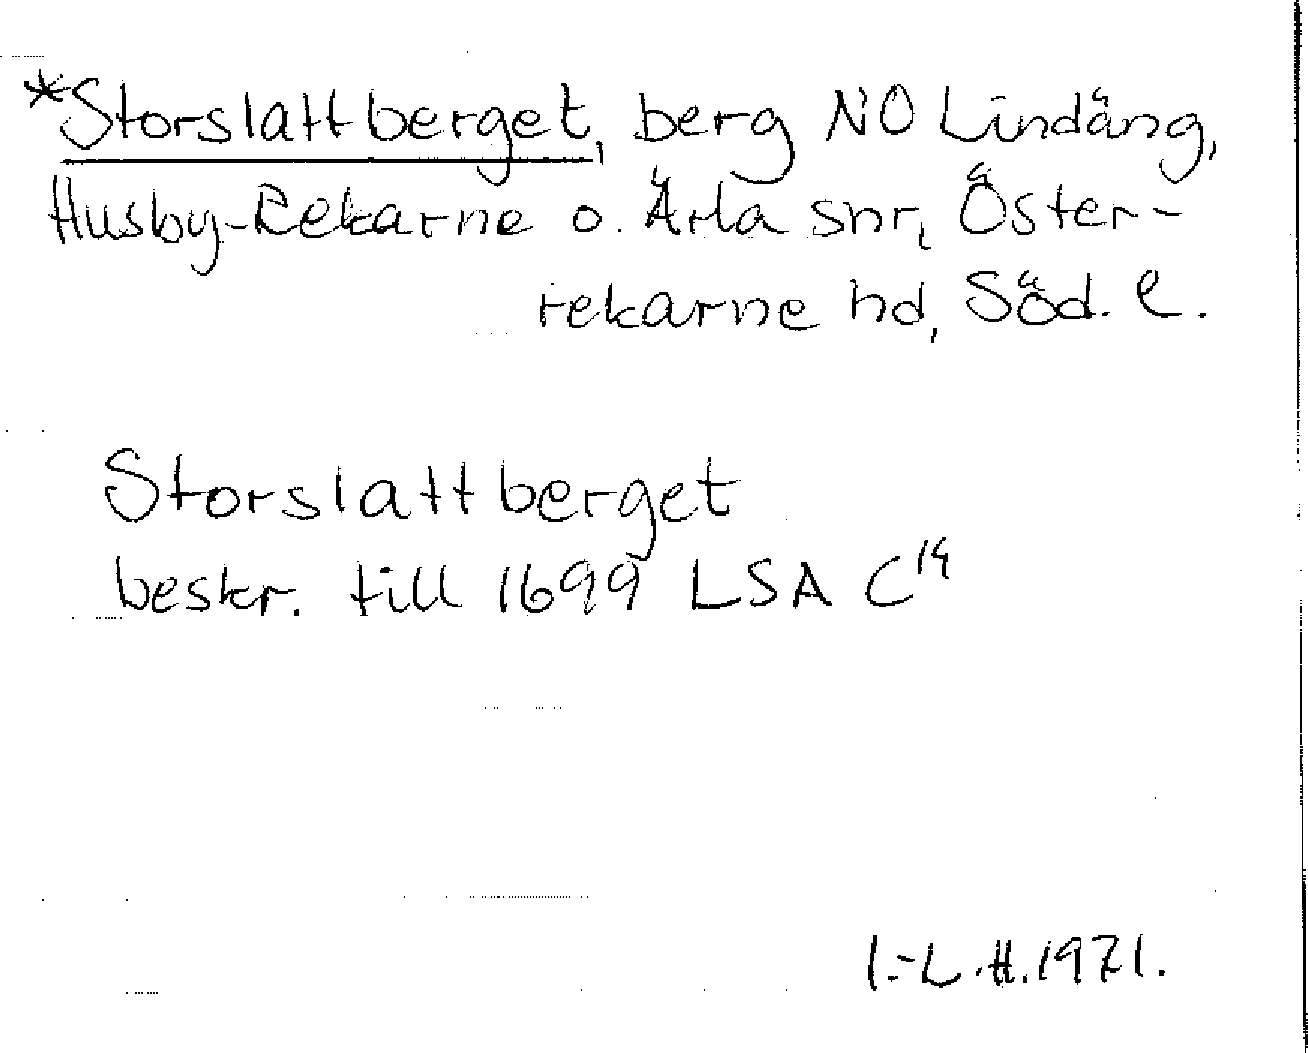 *Storslattberget, berg NO Lindäng,
Husby-Rekarne o. Ärla snr, Öster-
rekarne hd, Söd. l.
Storslattberget
beskr. till 1699 LSA C¹⁴
I.-L.H.1971.